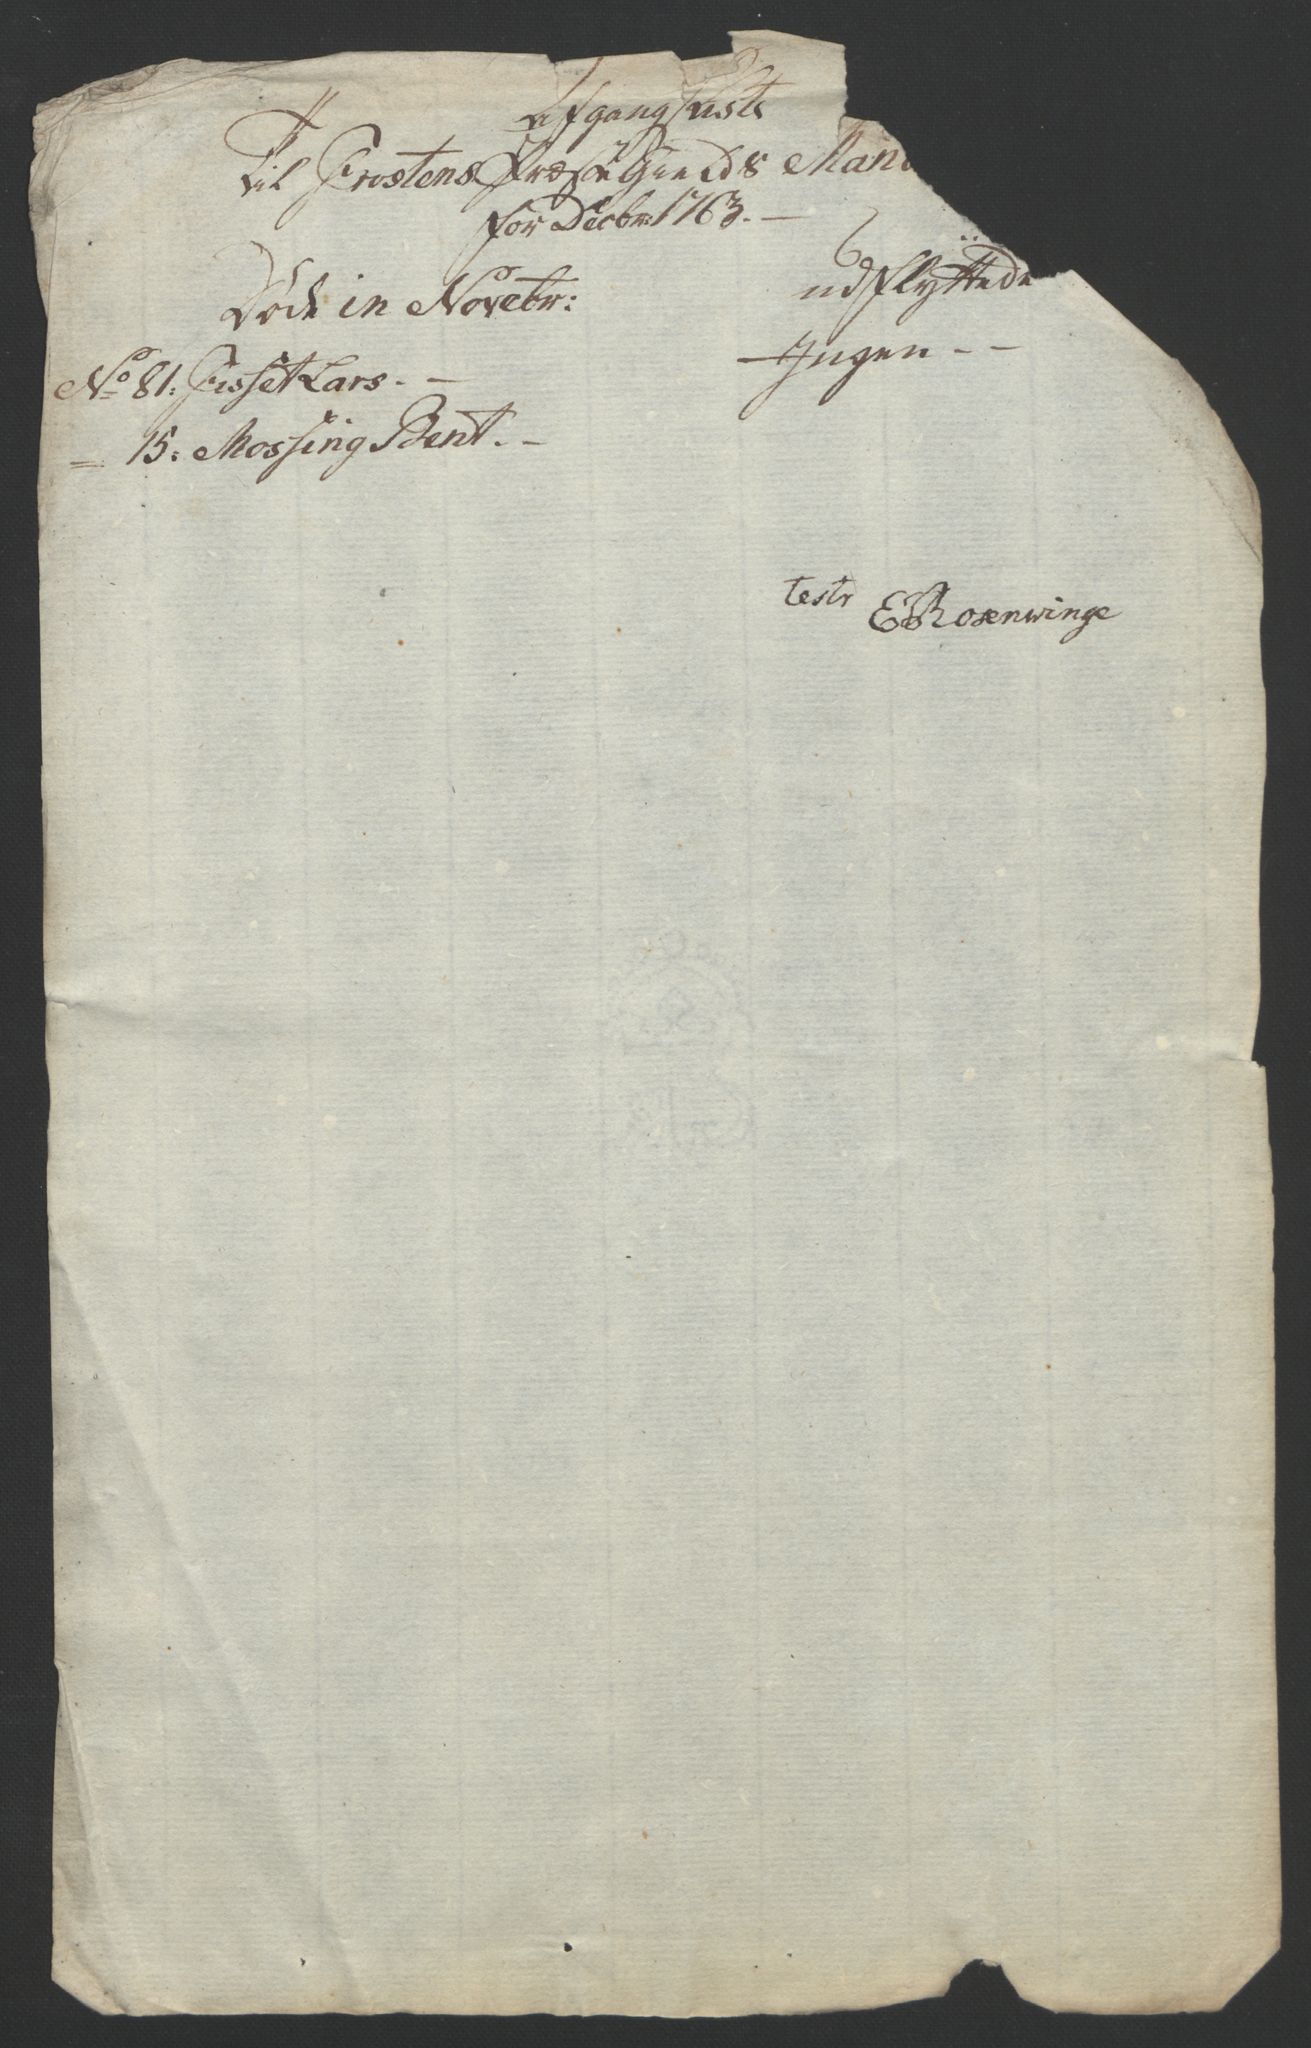 Afgangs Liste
til Frostens Præste Gields Man
for Decbr: 1763. –
Døde in Novebr:
No 81: Fisset Lars. –
= 15: Mossing Bent. –
udflyttede
Ingen – –
test E Rosenwinge